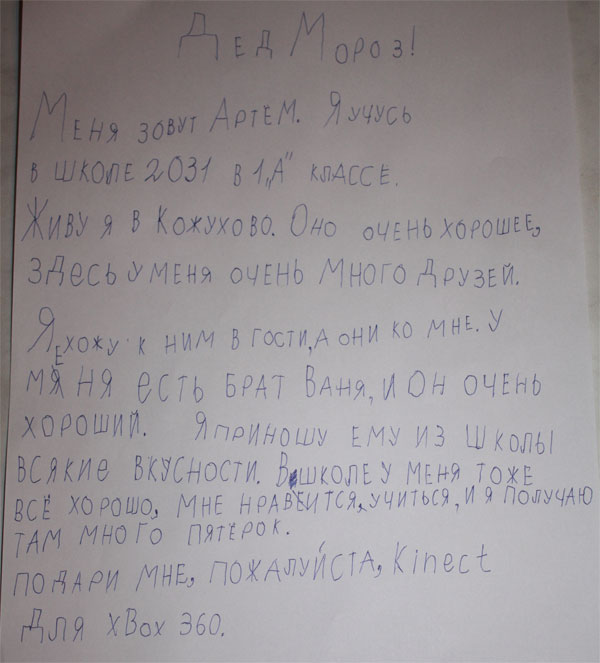 Дед Мороз!
Меня зовут Артём. Я учусь
в школе 2031 в 1„А" классе.
Живу я в Кожухово. Оно очень хорошее,
здесь у меня очень много друзей.
Я хожу к ним в гости, а они ко мне. У
меня есть брат Ваня, и он очень
хороший. Я приношу ему из школы
всякие вкусности. В школе у меня тоже
всё хорошо, мне нравеится, учиться, и я получаю
там много пятёрок.
подари мне, пожалуйста, Kinect
Для xBox 360.